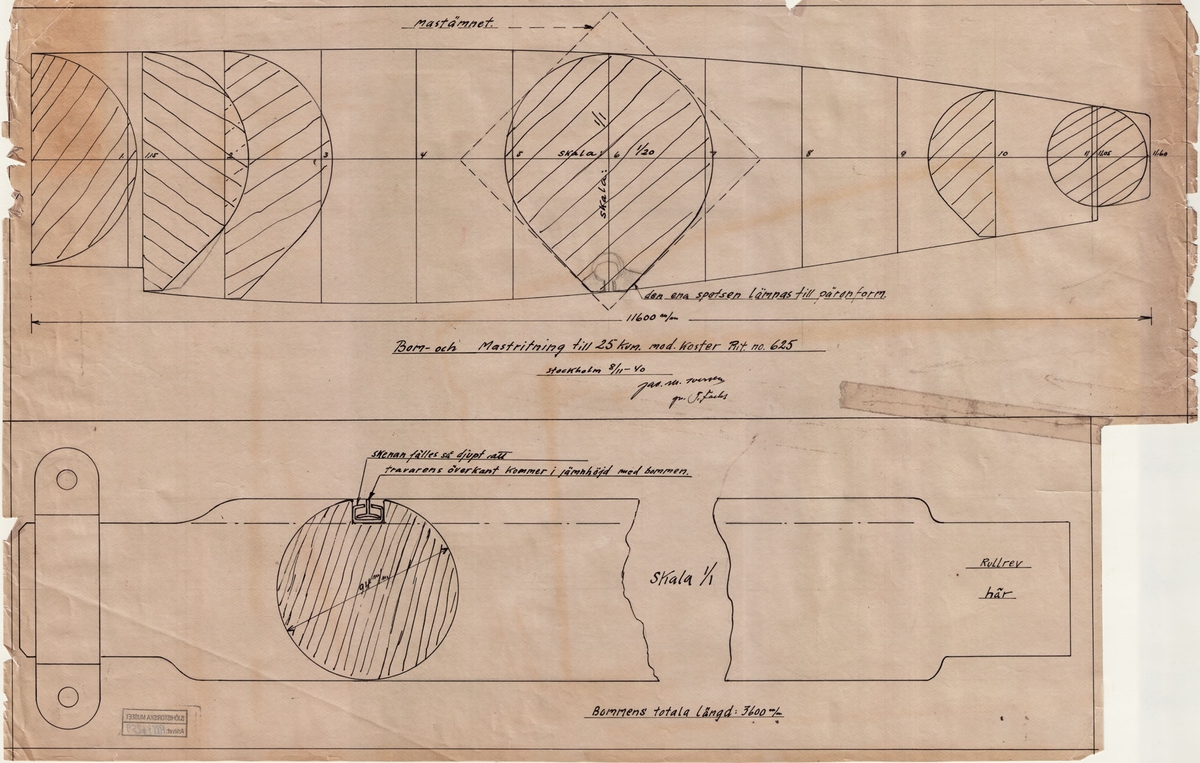 Mastämnet.
1 1,15 2 3 4 5 6 7 8 9 10 11 11,05 11,60
skala: 1/20
skala: 1/1
den ena spetsen lämnas till päronform.
11600 m/m
Bom- och Mastritning till 25 kvm. mod. Koster Rit. no. 625
Stockholm 8/11-40
skenan fälles så djupt att
travarens överkant kommer i jämnhöjd med bommen.
94 m/m
Skala 1/1
Rullrev
här
Bommens totala längd: 3600 m/m
SJÖHISTORISKA MUSEET